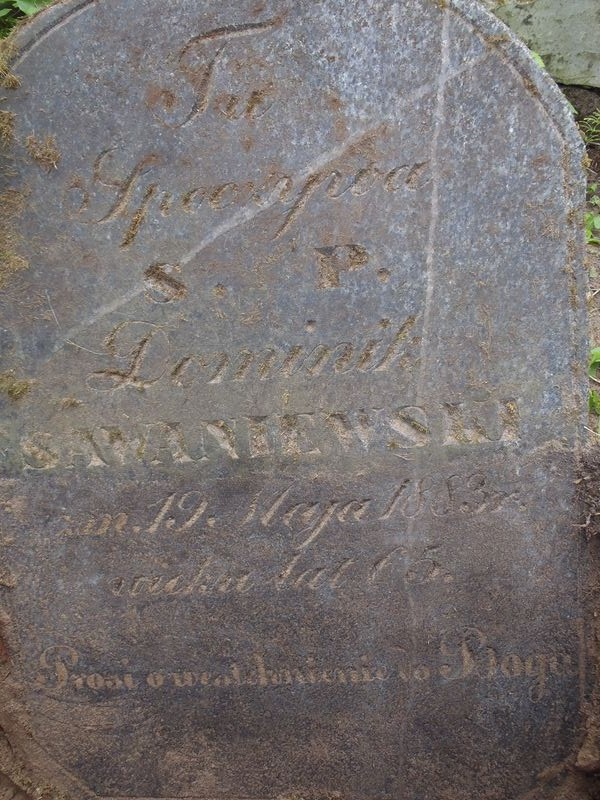 Tu
Spoczywa
S. P.
Dominik
SAWANIEWSKI
zm. 19. Maja 1883 r.
wieku lat 65.
Prosi o westchnienie do Bogu